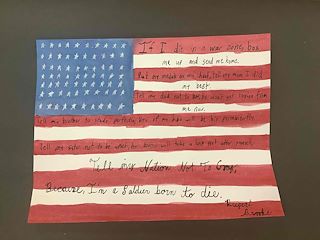 If I die in a war zone, box
me up and send me home.
Put my medals on my chest, tell my mom I did
my best.
Tell my dad not to bow he won't get tension from
me now.
Tell my brother to study perfectly, keys of my bike will be his permanently.
Tell my sister not to be upset, her bro will take a long rest after sunset.
Tell my Nation Not To Cry,
Because, I'm a Soldier born to die.